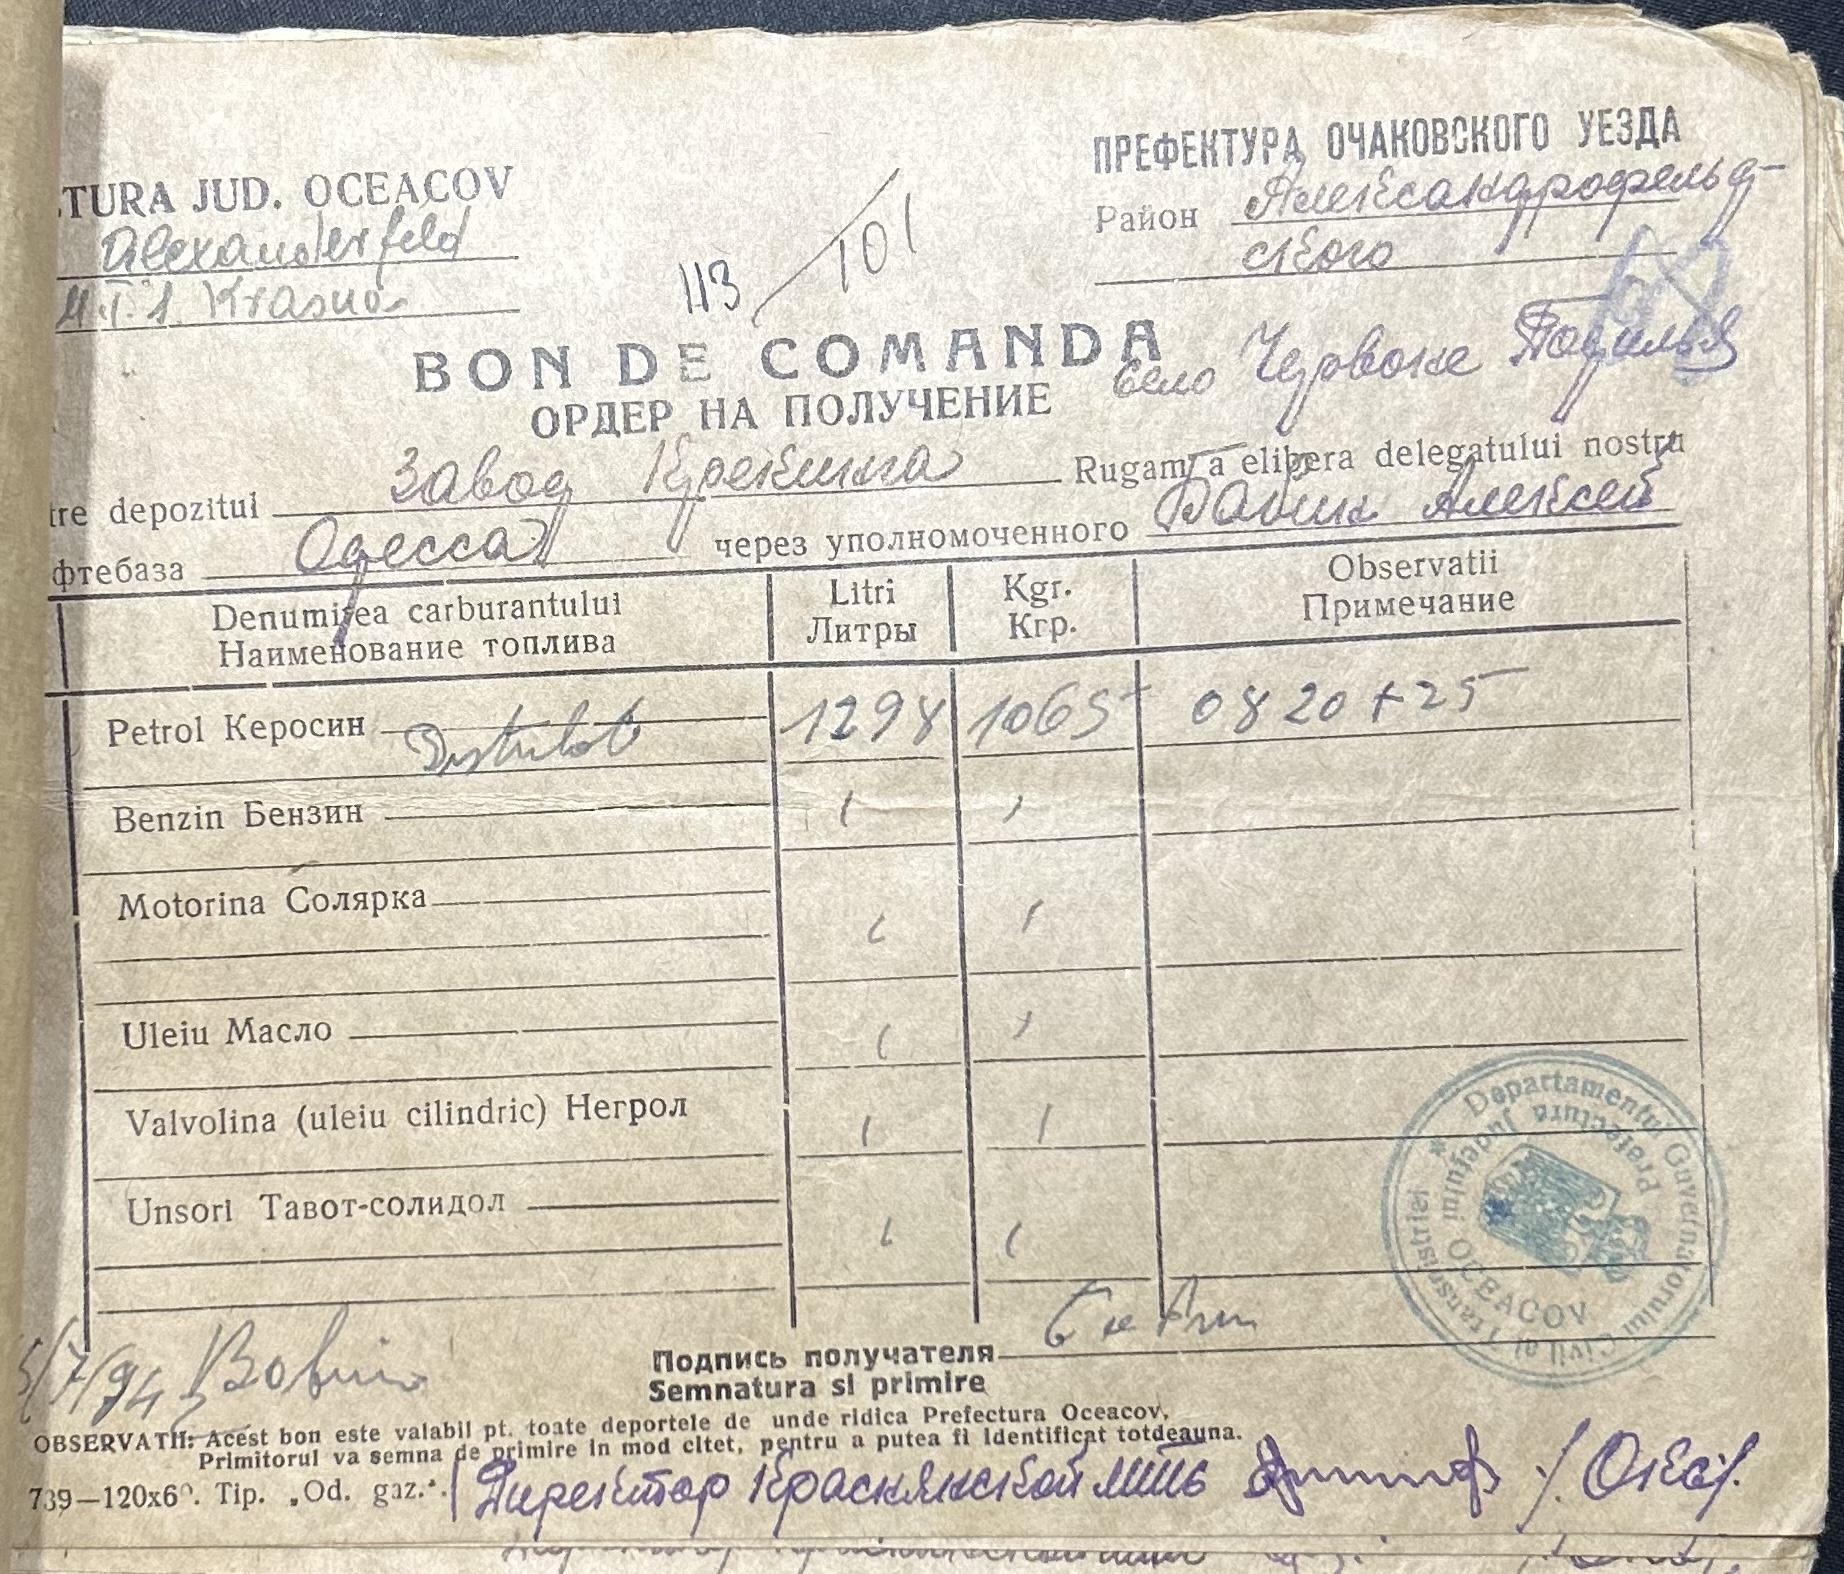 TURA JUD. OCEACOV
Alexanderfeld
M.T.S. Krasna
113 / 101
ПРЕФЕКТУРА ОЧАКОВСКОГО УЕЗДА
Район Александрофельд-
ского
BON DE COMANDA
Село Червоне Поділля
ОРДЕР НА ПОЛУЧЕНИЕ
tre depozitul Завод Крекинга Rugam a elibera delegatului nostru
фтебаза Одесса через уполномоченного Бабин Алексей
Denumirea carburantului Litri Kgr. Observatii
Наименование топлива Литры Кгр. Примечание
Petrol Керосин Distilat 1298 1065 0820 + 25
Benzin Бензин
Motorina Солярка
Uleiu Масло
Valvolina (uleiu cilindric) Негрол
Unsori Тавот-солидол
Подпись получателя
Semnatura si primire
OBSERVATII: Acest bon este valabil pt. toate deportele de unde ridica Prefectura Oceacov,
Primitorul va semna de primire in mod citet, pentru a putea fi identificat totdeauna.
739—120x6⁰. Tip. „Od. gaz.“. Директор Краснянской мтс
Departamentul Guvernatorului Civil al Transnistriei
Prefectura Județului OCEACOV